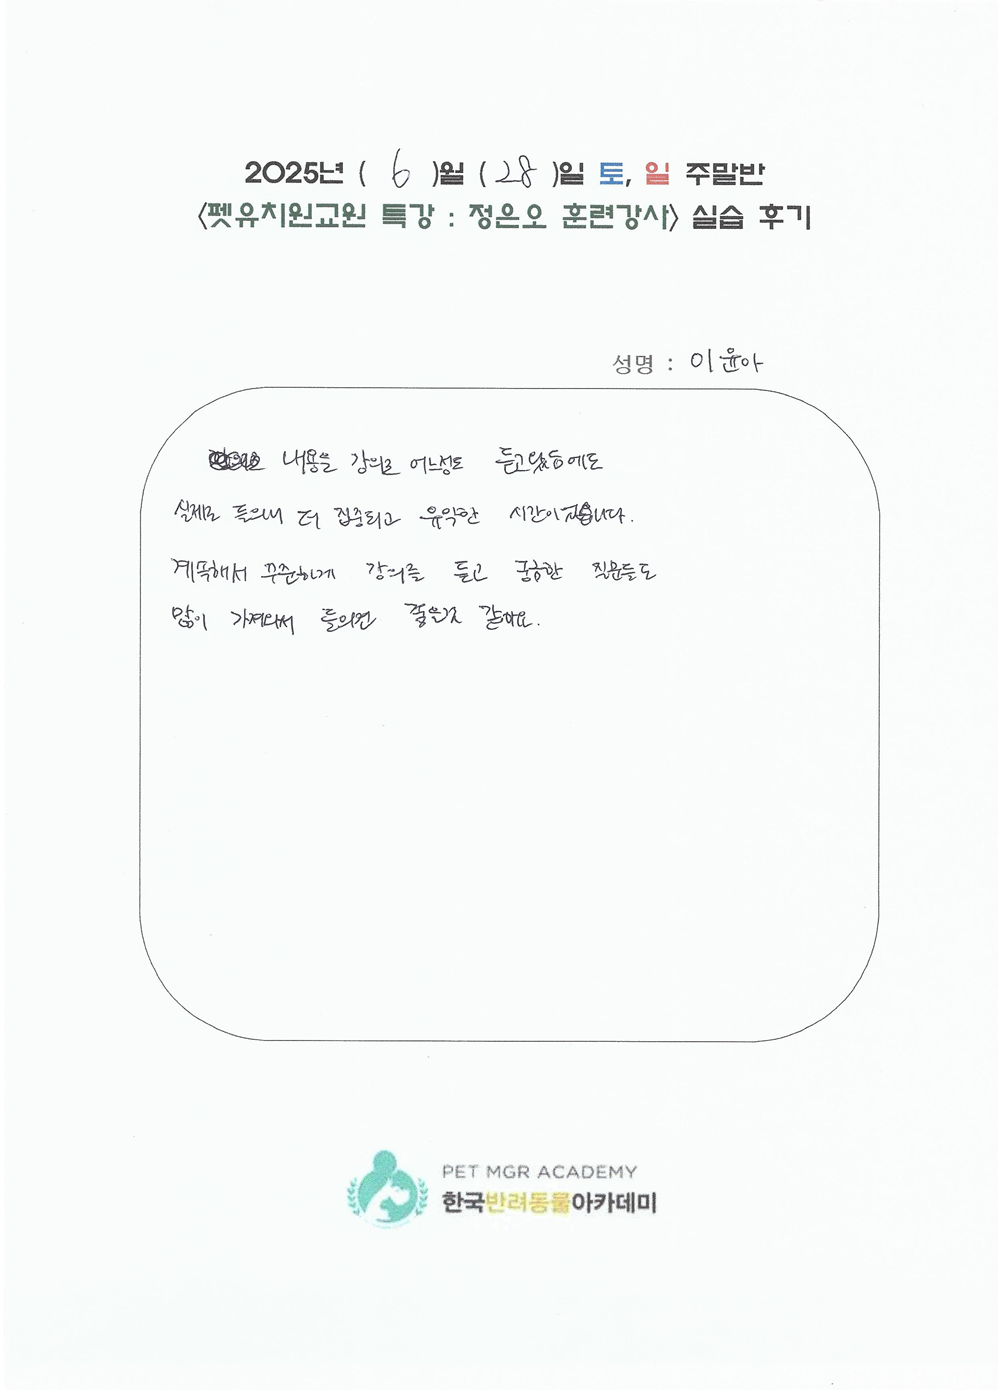 2025년 ( 6 )월 ( 28 )일 토, 일 주말반
<펫유치원교원 특강 : 정은오 훈련강사> 실습 후기
성명 : 이윤아
내용을 강의로 어느정도 듣고왔음에도
실제로 들으니 더 집중되고 유익한 시간이었습니다.
계속해서 꾸준하게 강의를 듣고 궁금한 질문들도
많이 가져와서 들으면 좋을것 같아요.
PET MGR ACADEMY
한국반려동물아카데미